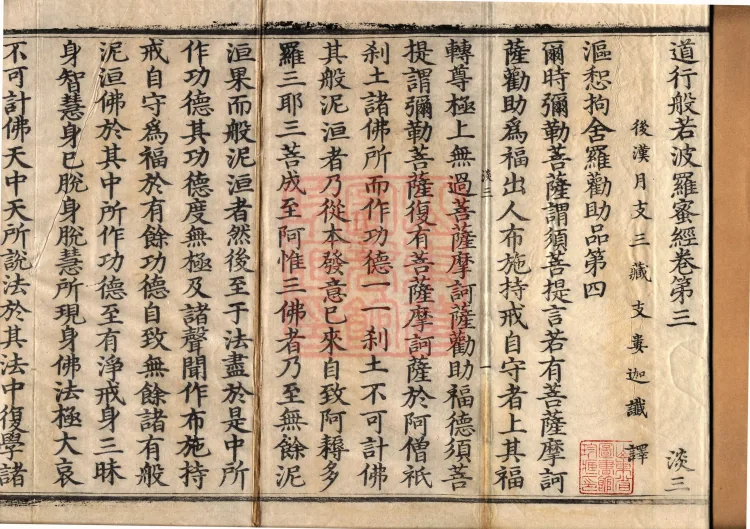 道行般若波羅蜜經卷第三 淡三
後漢月支三藏支婁迦讖譯
漚惒拘舍羅勸助品第四
爾時彌勒菩薩謂須菩提言若有菩薩摩訶
薩勸助為福出人布施持戒自守者上其福
淡三 一
轉尊極上無過菩薩摩訶薩勸助福德須菩
提謂彌勒菩薩復有菩薩摩訶薩於阿僧祇
剎土諸佛所而作功德一一剎土不可計佛
其般泥洹者乃從本發意已來自致阿耨多
羅三耶三菩成至阿惟三佛者乃至無餘泥
洹果而般泥洹者然後至于法盡於是中所
作功德其功德度無極及諸聲聞作布施持
戒自守為福於有餘功德自致無餘諸有般
泥洹佛於其中所作功德至有淨戒身三昧
身智慧身已脫身脫慧所現身佛法極大哀
不可計佛天中天所說法於其法中復學諸